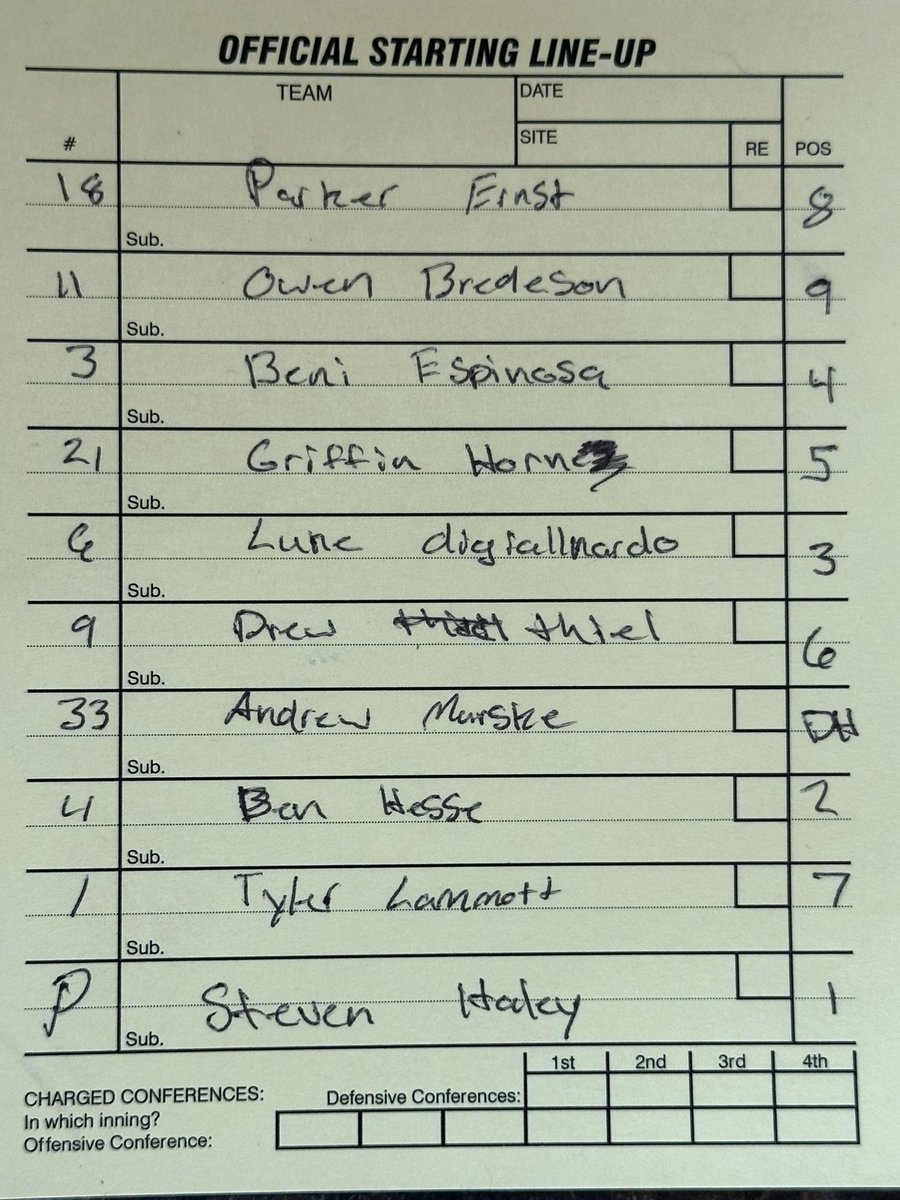 OFFICIAL STARTING LINE-UP
# TEAM DATE
SITE RE POS
18 Parker Ernst 8
Sub.
11 Owen Bredeson 9
Sub.
3 Beni Espinosa 4
Sub.
21 Griffin Horn 5
Sub.
6 Luke digiallnardo 3
Sub.
9 Drew thiel 6
Sub.
33 Andrew Marske DH
Sub.
4 Ben Hesse 2
Sub.
1 Tyler Lammott 7
Sub.
P Steven Haley 1
Sub.
1st 2nd 3rd 4th
CHARGED CONFERENCES: Defensive Conferences:
In which inning?
Offensive Conference: